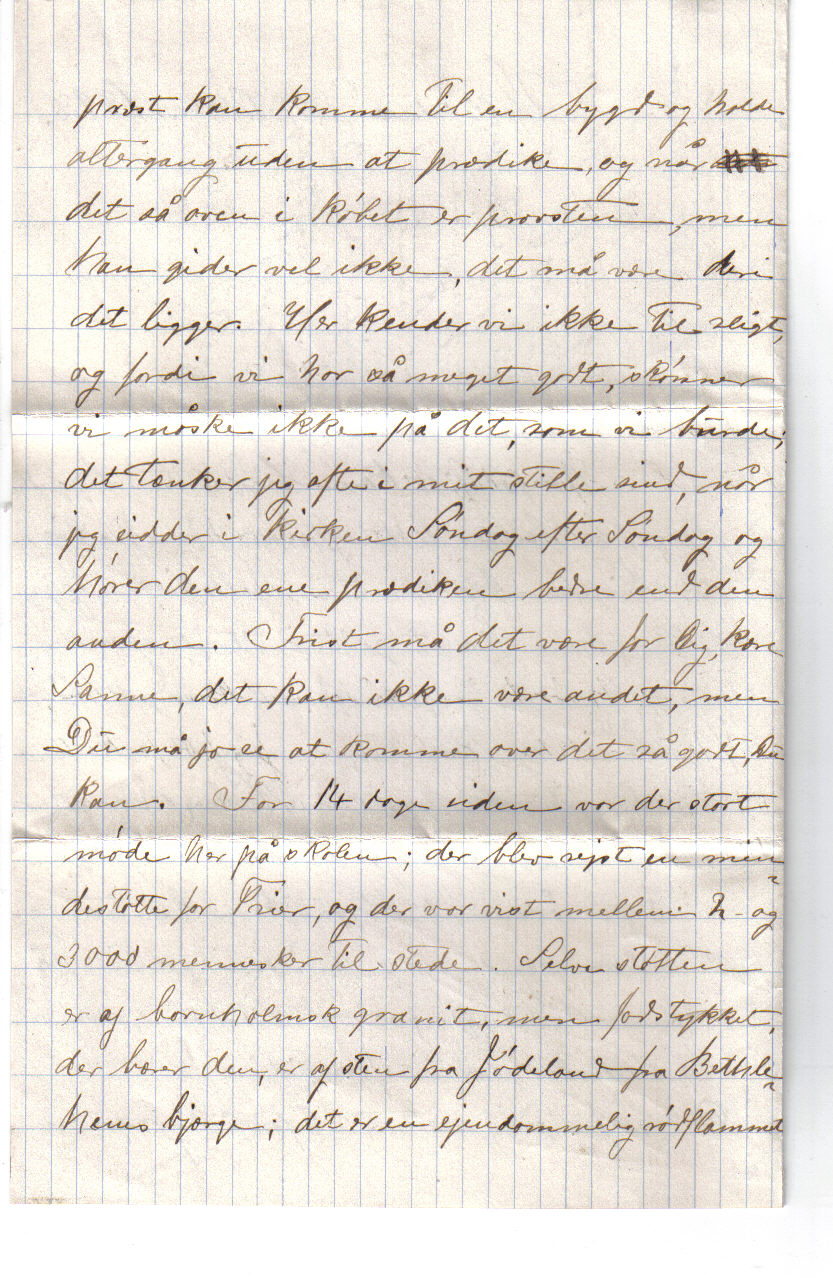 præst kan komme til en bygd og holde
altergang uden at prædike, og når
det så oven i købet er provsten, men
han gider vel ikke, det må være deri
det ligger. Her kender vi ikke til sligt,
og fordi vi har så meget godt, skönner
vi måske ikke på det, som vi burde;
det tænker jeg ofte i mit stille sind, når
jeg sidder i kirken Søndag efter Søndag og
hører den ene prædiken bedre end den
anden. Trist må det være for Dig, kære
Sanne, det kan ikke være andet, men
Du må jo se at komme over det så godt, Du
kan. For 14 dage siden var der stort
møde her på skolen; der blev rejst en min-
destøtte for Trier, og der var vist mellem 2- og
3000 mennesker til stede. Selve støtten
er af bornholmsk granit, men fodstykket,
der bærer den, er af sten fra Jødeland fra Bethle-
hems bjærge; det er en ejendommelig rødflammet